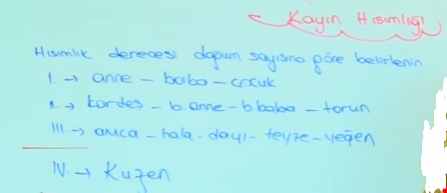 Kayın Hısımlığı
Hısımlık derecesi doğum sayısına göre belirlenir.
I. → anne - baba - çocuk
II. → kardeş - b.anne - b.baba - torun
III. → amca - hala - dayı - teyze - yeğen
IV. → Kuzen